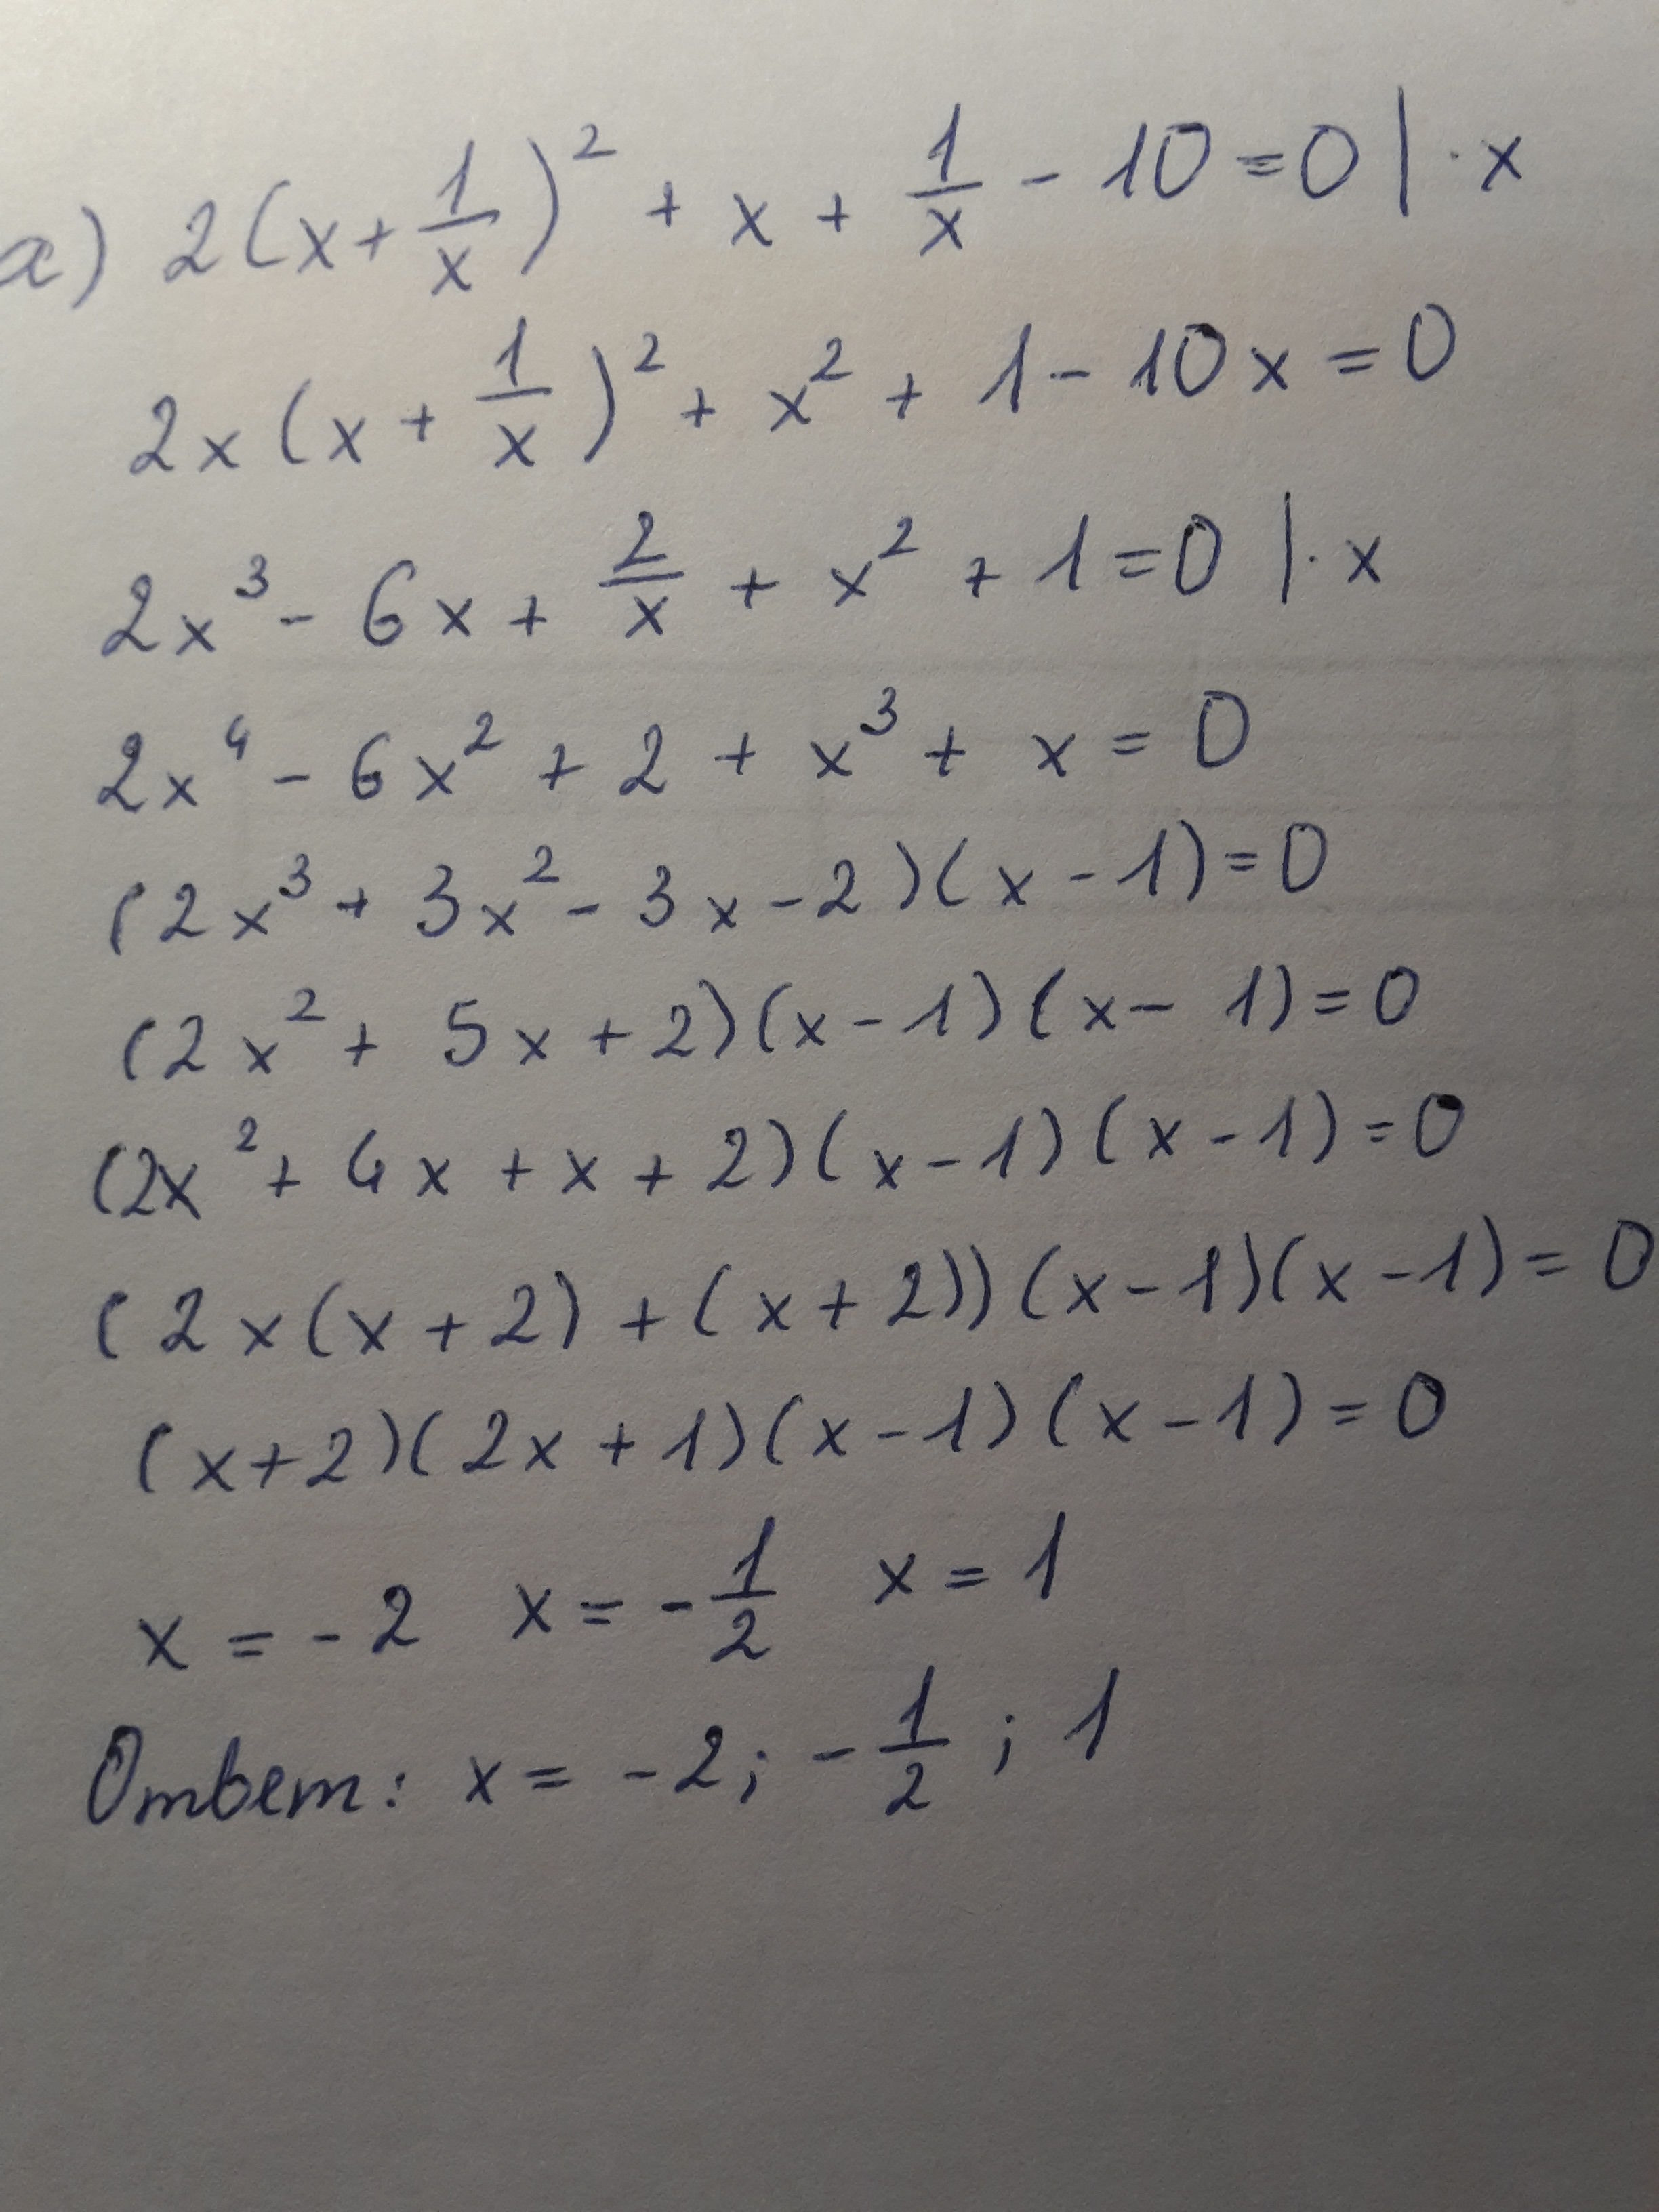 а) 2(x+1/x)² + x + 1/x - 10=0 | · x
2x(x+1/x)² + x² + 1 - 10x = 0
2x³ - 6x + 2/x + x² + 1 = 0 | · x
2x⁴ - 6x² + 2 + x³ + x = 0
(2x³ + 3x² - 3x - 2)(x - 1) = 0
(2x² + 5x + 2)(x - 1)(x - 1) = 0
(2x² + 4x + x + 2)(x - 1)(x - 1) = 0
(2x(x + 2) + (x + 2))(x - 1)(x - 1) = 0
(x+2)(2x + 1)(x - 1)(x - 1) = 0
x = -2 x = -1/2 x = 1
Ответ: x = -2; -1/2; 1